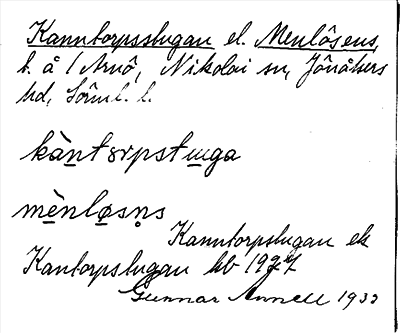 Kanntorpsstugan el. Menlösens,
t. å l Arnö, Nikolai sn, Jönåkers
hd, Södml. l.
kàntorpstuga
mènløsns
Kanntorpstugan els
Kantorpstugan kb 1927
Gunnar Annell 1933